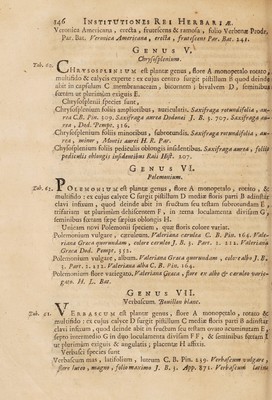 146 INSTITUTIONES REI HERBARIÆ.
Veronica Americana, erecta, frutescens & ramosa, folio Verbenæ Prodr.
Par. Bat. Veronica Americana, erecta, frutescens Par. Bat. 241.
GENUS V.
Chrysosplenium.
CHRYSOSPLENIUM est plantæ genus, flore A monopetalo rotato,
multifido & calycis experte: ex cujus centro surgit pistillum B quod deinde
abit in capsulam C membranaceam, bicornem, bivalvem D, seminibus
fœtam ut plurimùm exiguis E.
Chrysosplenii species sunt,
Chrysosplenium foliis amplioribus, auriculatis. Saxifraga rotundifolia, aurea
C.B. Pin. 309. Saxifraga aurea Dodonæi J. B. 3. 707. Saxifraga aurea,
Dod. Pempt. 316.
Chrysosplenium foliis minoribus, subrotundis. Saxifraga rotundifolia, aurea,
minor,
Chrysosplenium foliis pediculis oblongis insidentibus. Saxifraga aurea, foliis
pediculis oblongis insidentibus Raii Hist. 207.
GENUS VI.
Polemonium.
Tab. 61. POLEMONIUM est plantæ genus, flore A monopetalo, rotato, &
multifido: ex cujus calyce C surgit pistillum D mediæ floris parti B adinstar
clavi infixum, quod deinde abit in fructum seu testam subrotundam E,
trifariam ut plurimùm dehiscentem F, in terna loculamenta divisum G,
seminibus fœtam sæpe sapius oblongis H.
Unicam novi Polemonii speciem, quæ floris colore variat.
Polemonium vulgare, cæruleum. Valeriana cærulea C. B. Pin. 164. Valeriana
Græca quorumdam, colore cæruleo J. B. 3. Part. 2. 212. Valeriana
Græca Dod. Pempt. 352.
Polemonium vulgare, album. Valeriana Græca quorumdam, colore albo J. B.
3. Part. 2. 212. Valeriana alba C. B. Pin. 164.
Polemonium flore variegato. Valeriana Græca, flore ex albo & cæruleo variegato.
H. L. Bat.
GENUS VII.
Verbascum. Bouillon blanc.
VERBASCUM est plantæ genus, flore A monopetalo, rotato &
multifido: ex cujus calyce D surgit pistillum C mediæ floris parti B adinstar
clavi infixum, quod deinde abit in fructum seu testam ovato acuminatam E,
septo intermedio G in duo loculamenta divisam F F, & seminibus fœtam I
ut plurimùm exiguis & angulatis; placentæ H affixis.
Verbasci species sunt
Verbascum mas, latifolium, luteum C. B. Pin. 239. Verbascum vulgare,
flore luteo, magno, folio maximo J. B. 3. App. 871. Verbascum latius